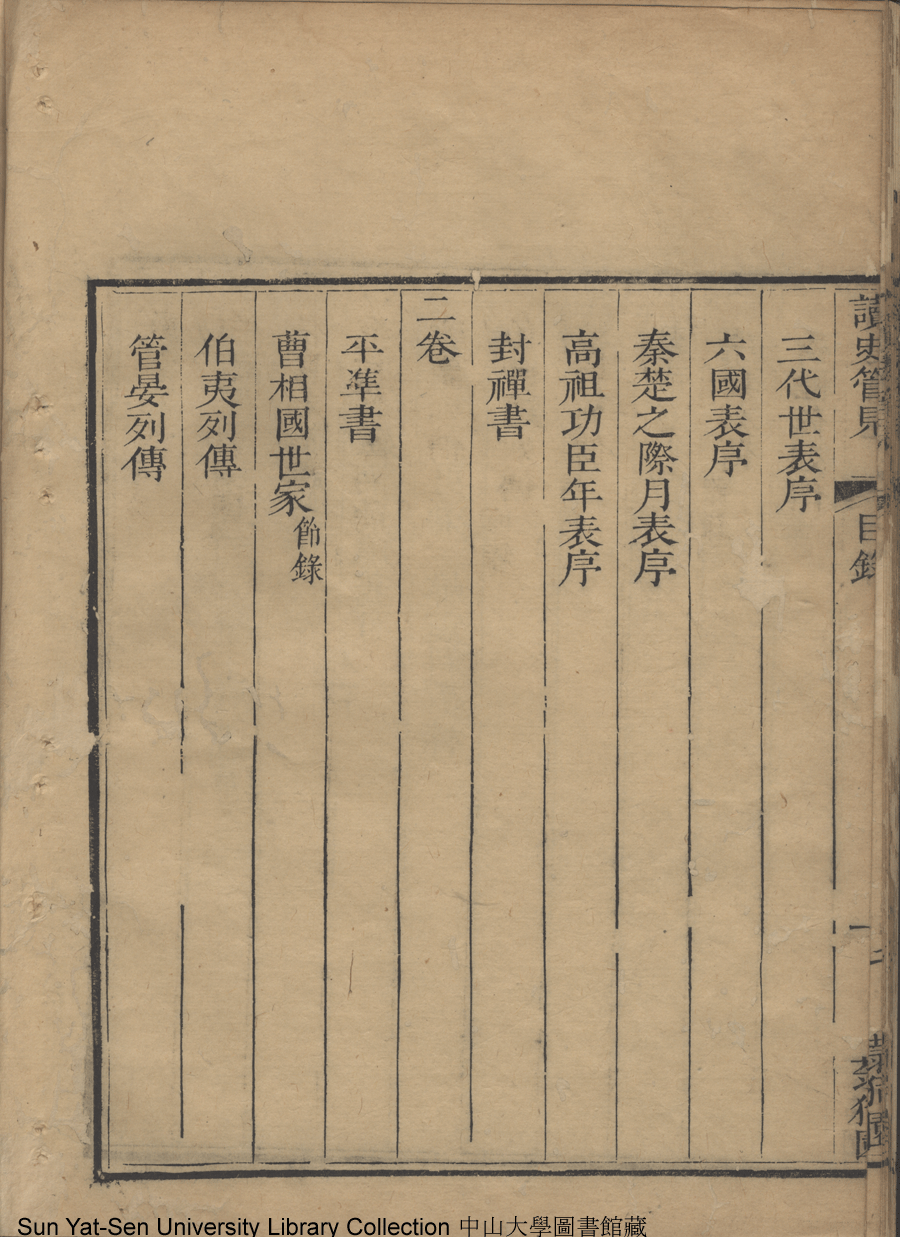 讀史管見 目錄 一
三代世表序
六國表序
秦楚之際月表序
高祖功臣年表序
封禪書
二卷
平準書
曹相國世家節錄
伯夷列傳
管晏列傳
Sun Yat-Sen University Library Collection 中山大學圖書館藏